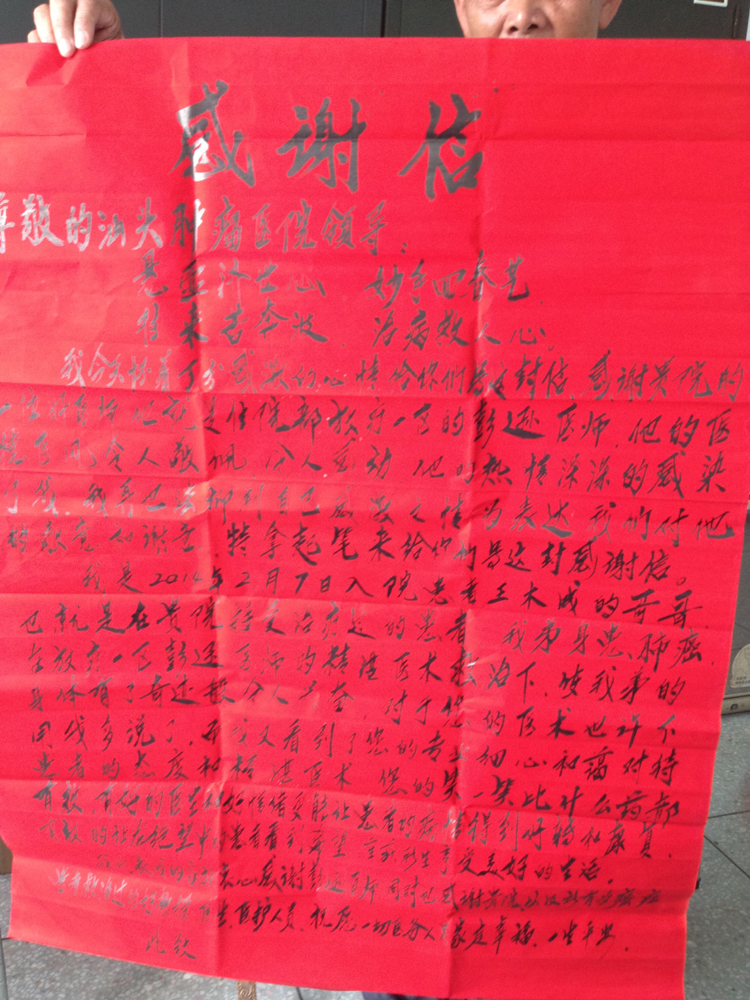 感谢信
尊敬的汕头肿瘤医院领导：
悬壶济士心 妙手回春艺
往来苦奔波，治病救人心。
我今天怀着了分感激的心情给你们写这封信，感谢贵院的
一位 是住院部放疗一区的彭逊医师，他的医
德医风令人敬佩，令人感动，他的热情深深的感染
了我，我再也 抑 自己感激之情 为表达我们对他
的敬意和谢意，特拿起笔来给你们写这封感谢信。
我是2014年2月7日入院患者王木成的哥哥
也就是在贵院接受治疗过的患者 我弟身患肺癌，
在放疗一区彭逊医师的精湛医术 治下，使我弟的
身体有了奇迹般令人 ，对于您的医术也许不
用我多说了，而我又看到了您的专业细心和蔼对待
患者的态度和精湛医术 您的笑一笑比什么药都
有效， 让患者的 得到好转和康复，
的 在绝望中的患者看到 生 享受美好的生活。
心感谢彭逊医师，同时也感谢贵院
医护人员，祝愿一切医务人 家庭幸福，一生平安，
此致